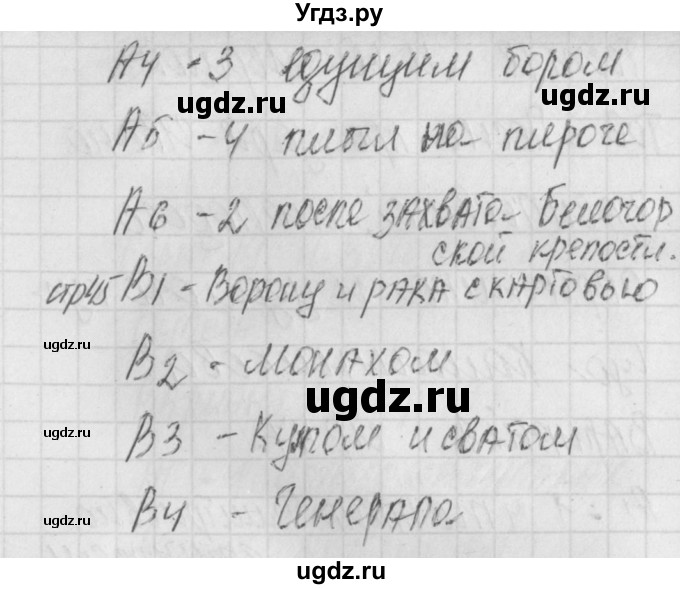 Угдз.ру
А4 - 3 едущим бором
ugdz.ru ugdz.ru
А5 - 4 плыл на пироге
А6 - 2 после захвата Белогор
ской крепости.
стр45 В1 - Ворону и рака с картовью
ugdz.ru В2 - Монахом
ugdz.ru
ugdz.ru В3 - Кумом и сватом
ugdz.ru В4 - Генерала
ugdz.ru